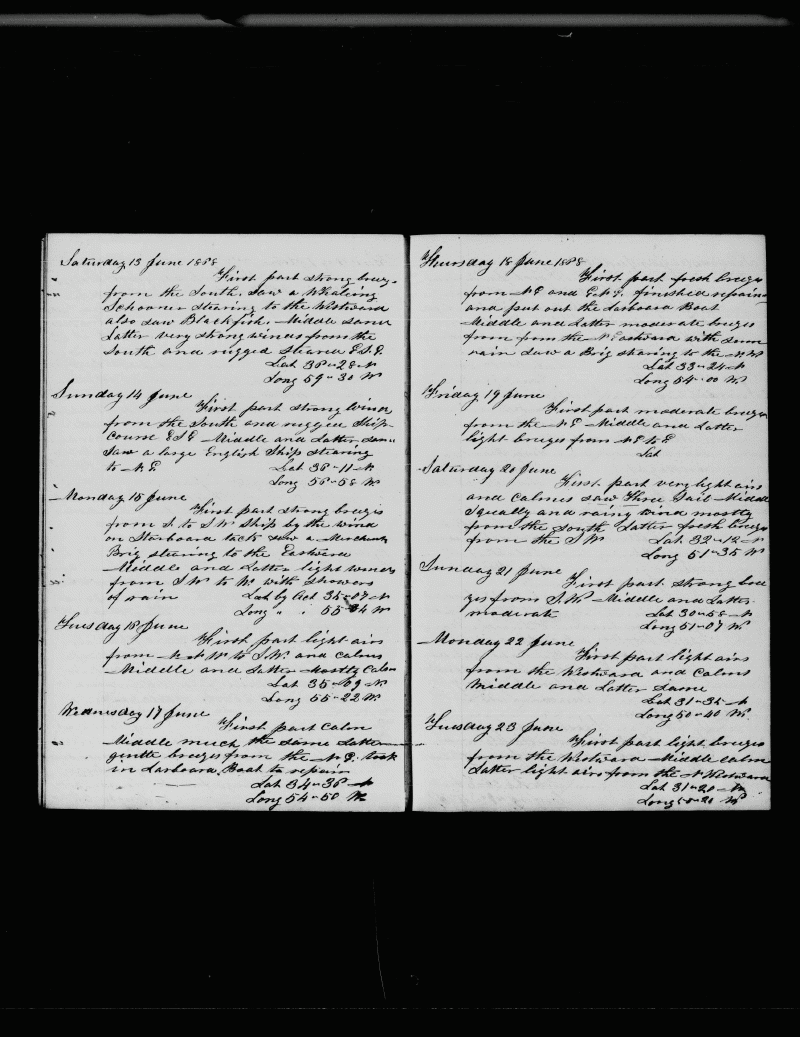 Saturday 13 June 1888
First part strong breeze
from the South. Saw a Whaleing
Schooner stearing to the Westward
also saw Blackfish. Middle same
Latter very strong winds from the
South and rugged steared E.S.E.
Lat 38"28 N
Long 59"30 W
Sunday 14 June
First part strong Winds
from the South and rugged Ship
Course E S E Middle and Latter same
Saw a large English Ship stearing
to N.E. Lat 38"11 N
Long 56"58 W
Monday 15 June
First part strong breezes
from S. to S W Ship by the wind
on Starboard tack saw a Merchant
Brig stearing to the Eastward
Middle and Latter light winds
from S W to W. with Showers
of rain Lat by Act 35"07 N
Long " " 55"24 W
Tuesday 16 June
First part light airs
from N W to S.W. and calms
Middle and Latter Mostly Calm
Lat 35"09 N
Long 55"22 W.
Wednesday 17 June
First part Calm
Middle much the same Latter
gentle breezes from the N.E. took
in Larboard Boat to repair
Lat 34"38 N
Long 54"58 W
Thursday 18 June 1888
First part fresh breezes
from N.E and finished repairing
and put out the Larboard Boat
Middle and Latter moderate breezes
from from the N. Eastward with some
rain Saw a Brig stearing to the N.W
Lat 33"24 N
Long 54"00 W
Friday 19 June
First part moderate breezes
from the N.E. Middle and Latter
light breezes from N.E to E
Lat
Saturday 20 June
First part very light airs
and Calmes saw Three Sail Middle
Squally and rainy wind mostly
from the South Latter fresh breezes
from the S W Lat 32"12 N
Long 51"35 W
Sunday 21 June
First part strong bree
zes from S.W. Middle and Latter
moderate Lat 30"58 N
Long 51"07 W
Monday 22 June
First part light airs
from the Westward and Calms
Middle and Latter Same
Lat 31"35 N
Long 50"40 W.
Tuesday 23 June
First part light breezes
from the Westward Middle calm
Latter light airs from the N Westward
Lat 31"20 N
Long 50"20 W